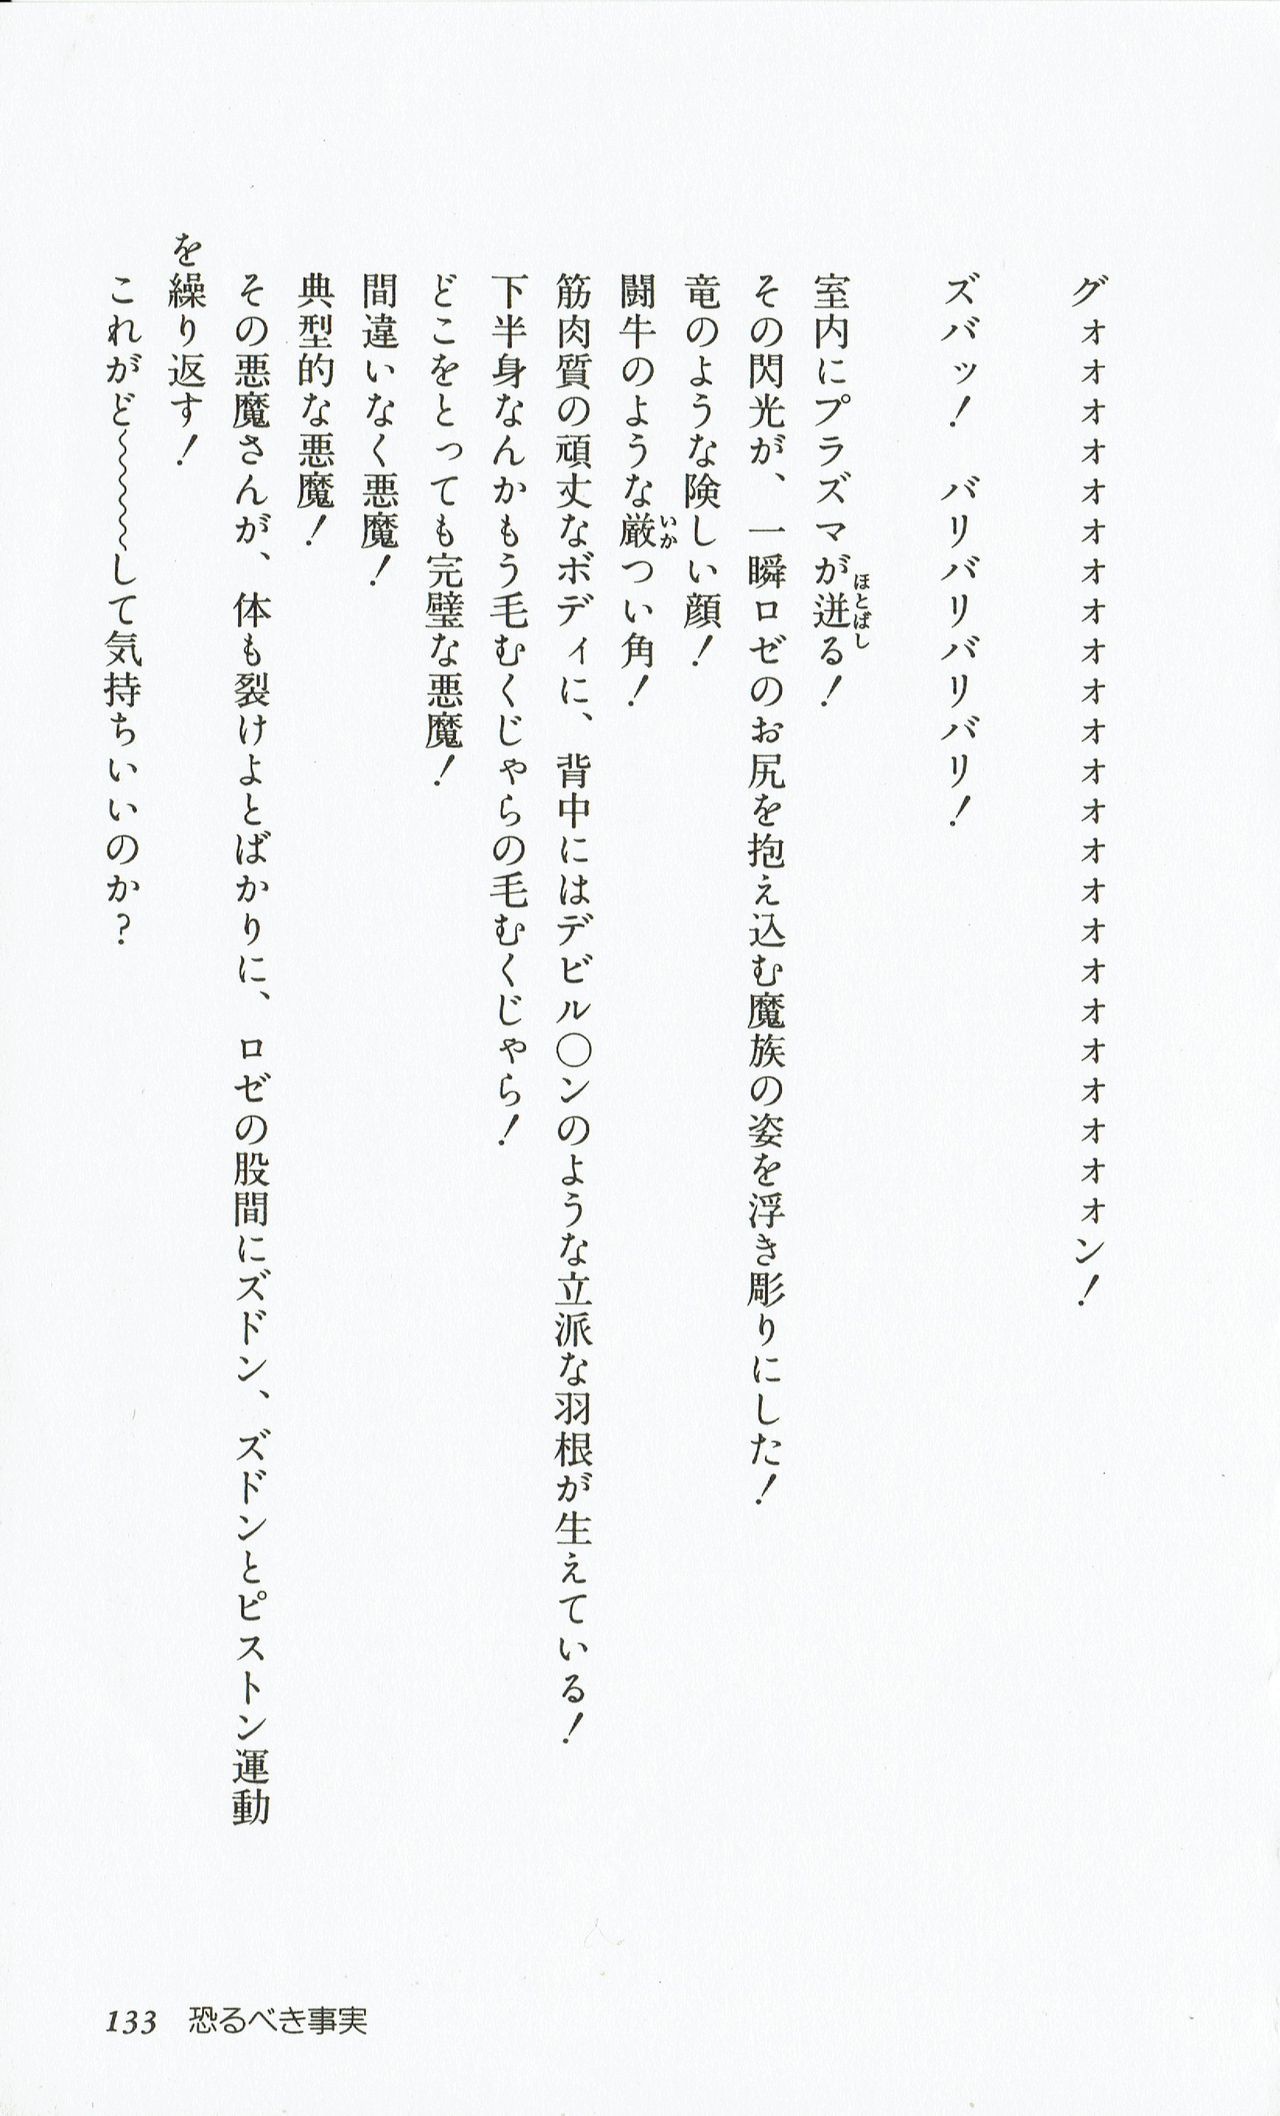 グォォォォォォォォォォォォォォォォォォォォォォォン！
ズバッ！　バリバリバリバリ！
室内にプラズマが迸る！
その閃光が、一瞬ロゼのお尻を抱え込む魔族の姿を浮き彫りにした！
竜のような険しい顔！
闘牛のような厳つい角！
筋肉質の頑丈なボディに、背中にはデビル〇ンのような立派な羽根が生えている！
下半身なんかもう毛むくじゃらの毛むくじゃら！
どこをとっても完璧な悪魔！
間違いなく悪魔！
典型的な悪魔！
その悪魔さんが、体も裂けよとばかりに、ロゼの股間にズドン、ズドンとピストン運動
を繰り返す！
これがど〜〜〜〜して気持ちいいのか？
ほとばし
いか
133　恐るべき事実